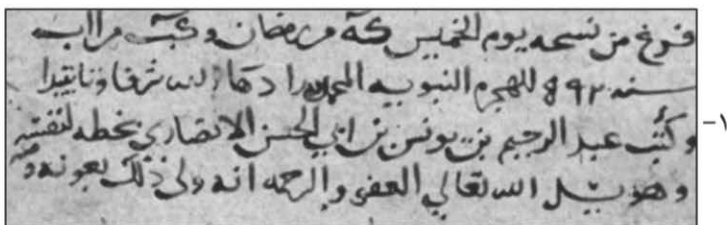 فرغ من نسخه يوم الخميس كه من رمضان وكتب من
سنه ٨٩٢ للهجره النبويه المحمديه زادها الله شرفا وتأييدا
وكتب عبد الرحيم بن يونس بن ابي الحسن الانصاري بخطه لنفسه
وهو يسل الله تعالي العفو والرحمه انه ولى ذلك بعونه و
-١